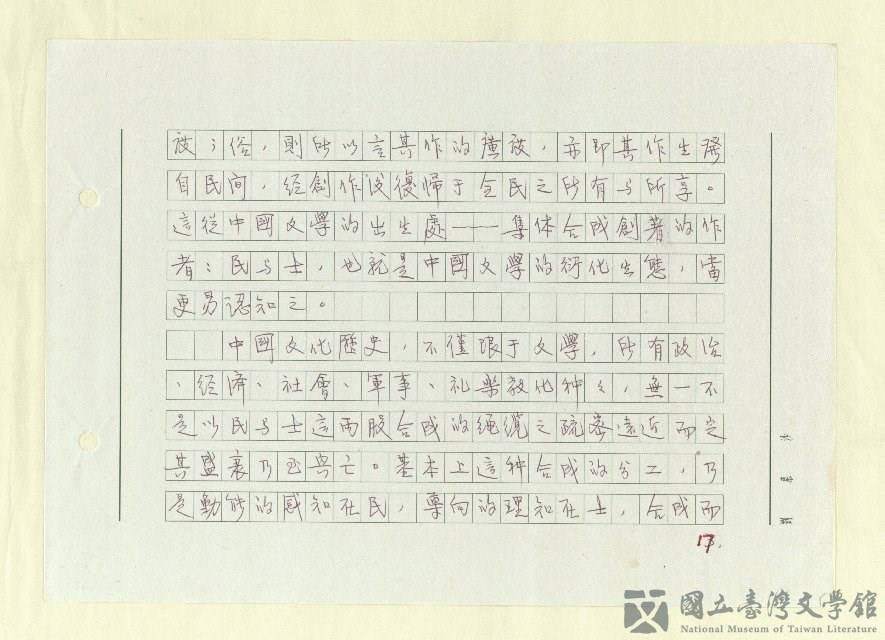 放；俗，則所以言其作的廣放，亦即其作生發
自民间，经創作後復帰于全民之所有与所享。
這從中國文學的出生處——集体合成創著的作
者：民与士，也就是中國文學的衍化生態，當
更易認知之。
中國文化歷史，不僅限于文學，所有政治
、经濟、社會、軍事、礼樂教化种々，無一不
是以民与士這兩股合成的繩纜之疏密遠近而定
其盛衰乃至興亡。基本上這种合成的分工，乃
是動能的感知在民，導向的理知在士，合成而
17.
國立臺灣文學館
National Museum of Taiwan Literature